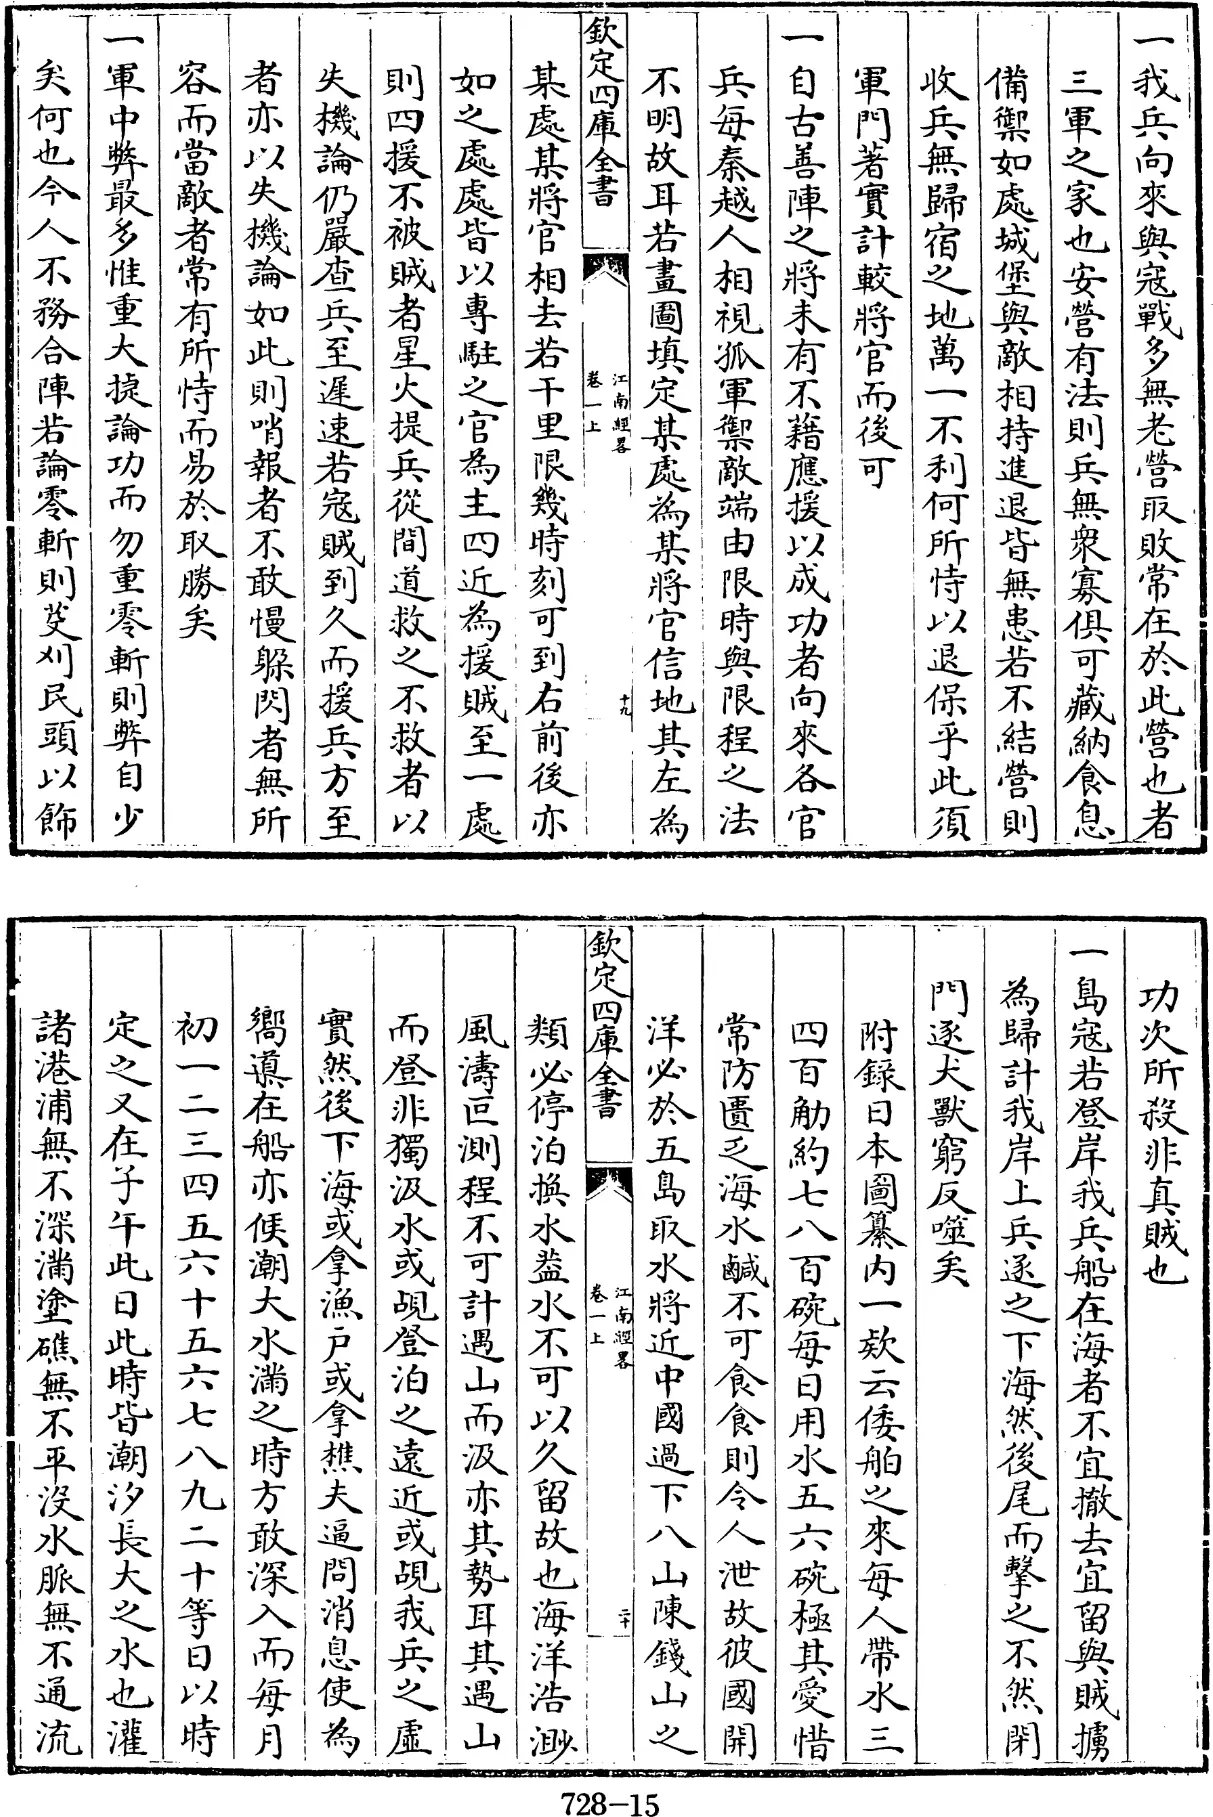 一我兵向來與寇戰多無老營取敗常在於此營也者
三軍之家也安營有法則兵無衆寡俱可藏納食息
備禦如處城堡與敵相持進退皆無患若不結營則
收兵無歸宿之地萬一不利何所恃以退保乎此須
軍門著實計較將官而後可
一自古善陣之將未有不藉應援以成功者向來各官
兵每秦越人相視孤軍禦敵端由限時與限程之法
不明故耳若畫圖填定某處為某將官信地其左為
欽定四庫全書
江南經畧
卷一上
十九
某處某將官相去若干里限幾時刻可到右前後亦
如之處處皆以專駐之官為主四近為援賊至一處
則四援不被賊者星火提兵從間道救之不救者以
失機論仍嚴查兵至遲速若寇賊到久而援兵方至
者亦以失機論如此則哨報者不敢慢躲閃者無所
容而當敵者常有所恃而易於取勝矣
一軍中弊最多惟重大捷論功而勿重零斬則弊自少
矣何也今人不務合陣若論零斬則芟刈民頭以飾
功次所殺非真賊也
一島寇若登岸我兵船在海者不宜撤去宜留與賊擄
為歸計我岸上兵逐之下海然後尾而擊之不然閉
門逐犬獸窮反噬矣
附錄日本圖纂内一欵云倭舶之來每人帶水三
四百觔約七八百碗每日用水五六碗極其愛惜
常防匱乏海水鹹不可食食則令人泄故彼國開
洋必於五島取水將近中國過下八山陳錢山之
欽定四庫全書
江南經畧
卷一上
二十
類必停泊換水葢水不可以久留故也海洋浩渺
風濤叵測程不可計遇山而汲亦其勢耳其遇山
而登非獨汲水或覘登泊之遠近或覘我兵之虛
實然後下海或拿漁户或拿樵夫逼問消息使為
嚮導在船亦候潮大水滿之時方敢深入而每月
初一二三四五六十五六七八九二十等日以時
定之又在子午此日此時皆潮汐長大之水也灌
諸港浦無不深滿塗礁無不平没水脈無不通流
728-15